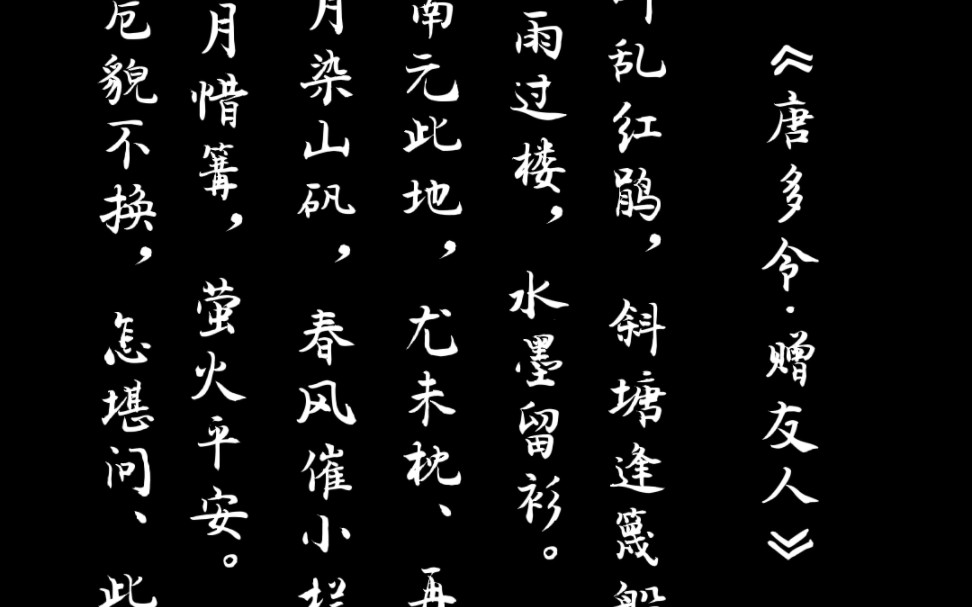 《唐多令·赠友人》
叶乱红鹃，斜塘逢篾船
雨过楼，水墨留衫。
南元此地，尤未枕、再
月染山矾，春风催小栏
月惜篝，萤火平安。
卮貌不换，怎堪问、此